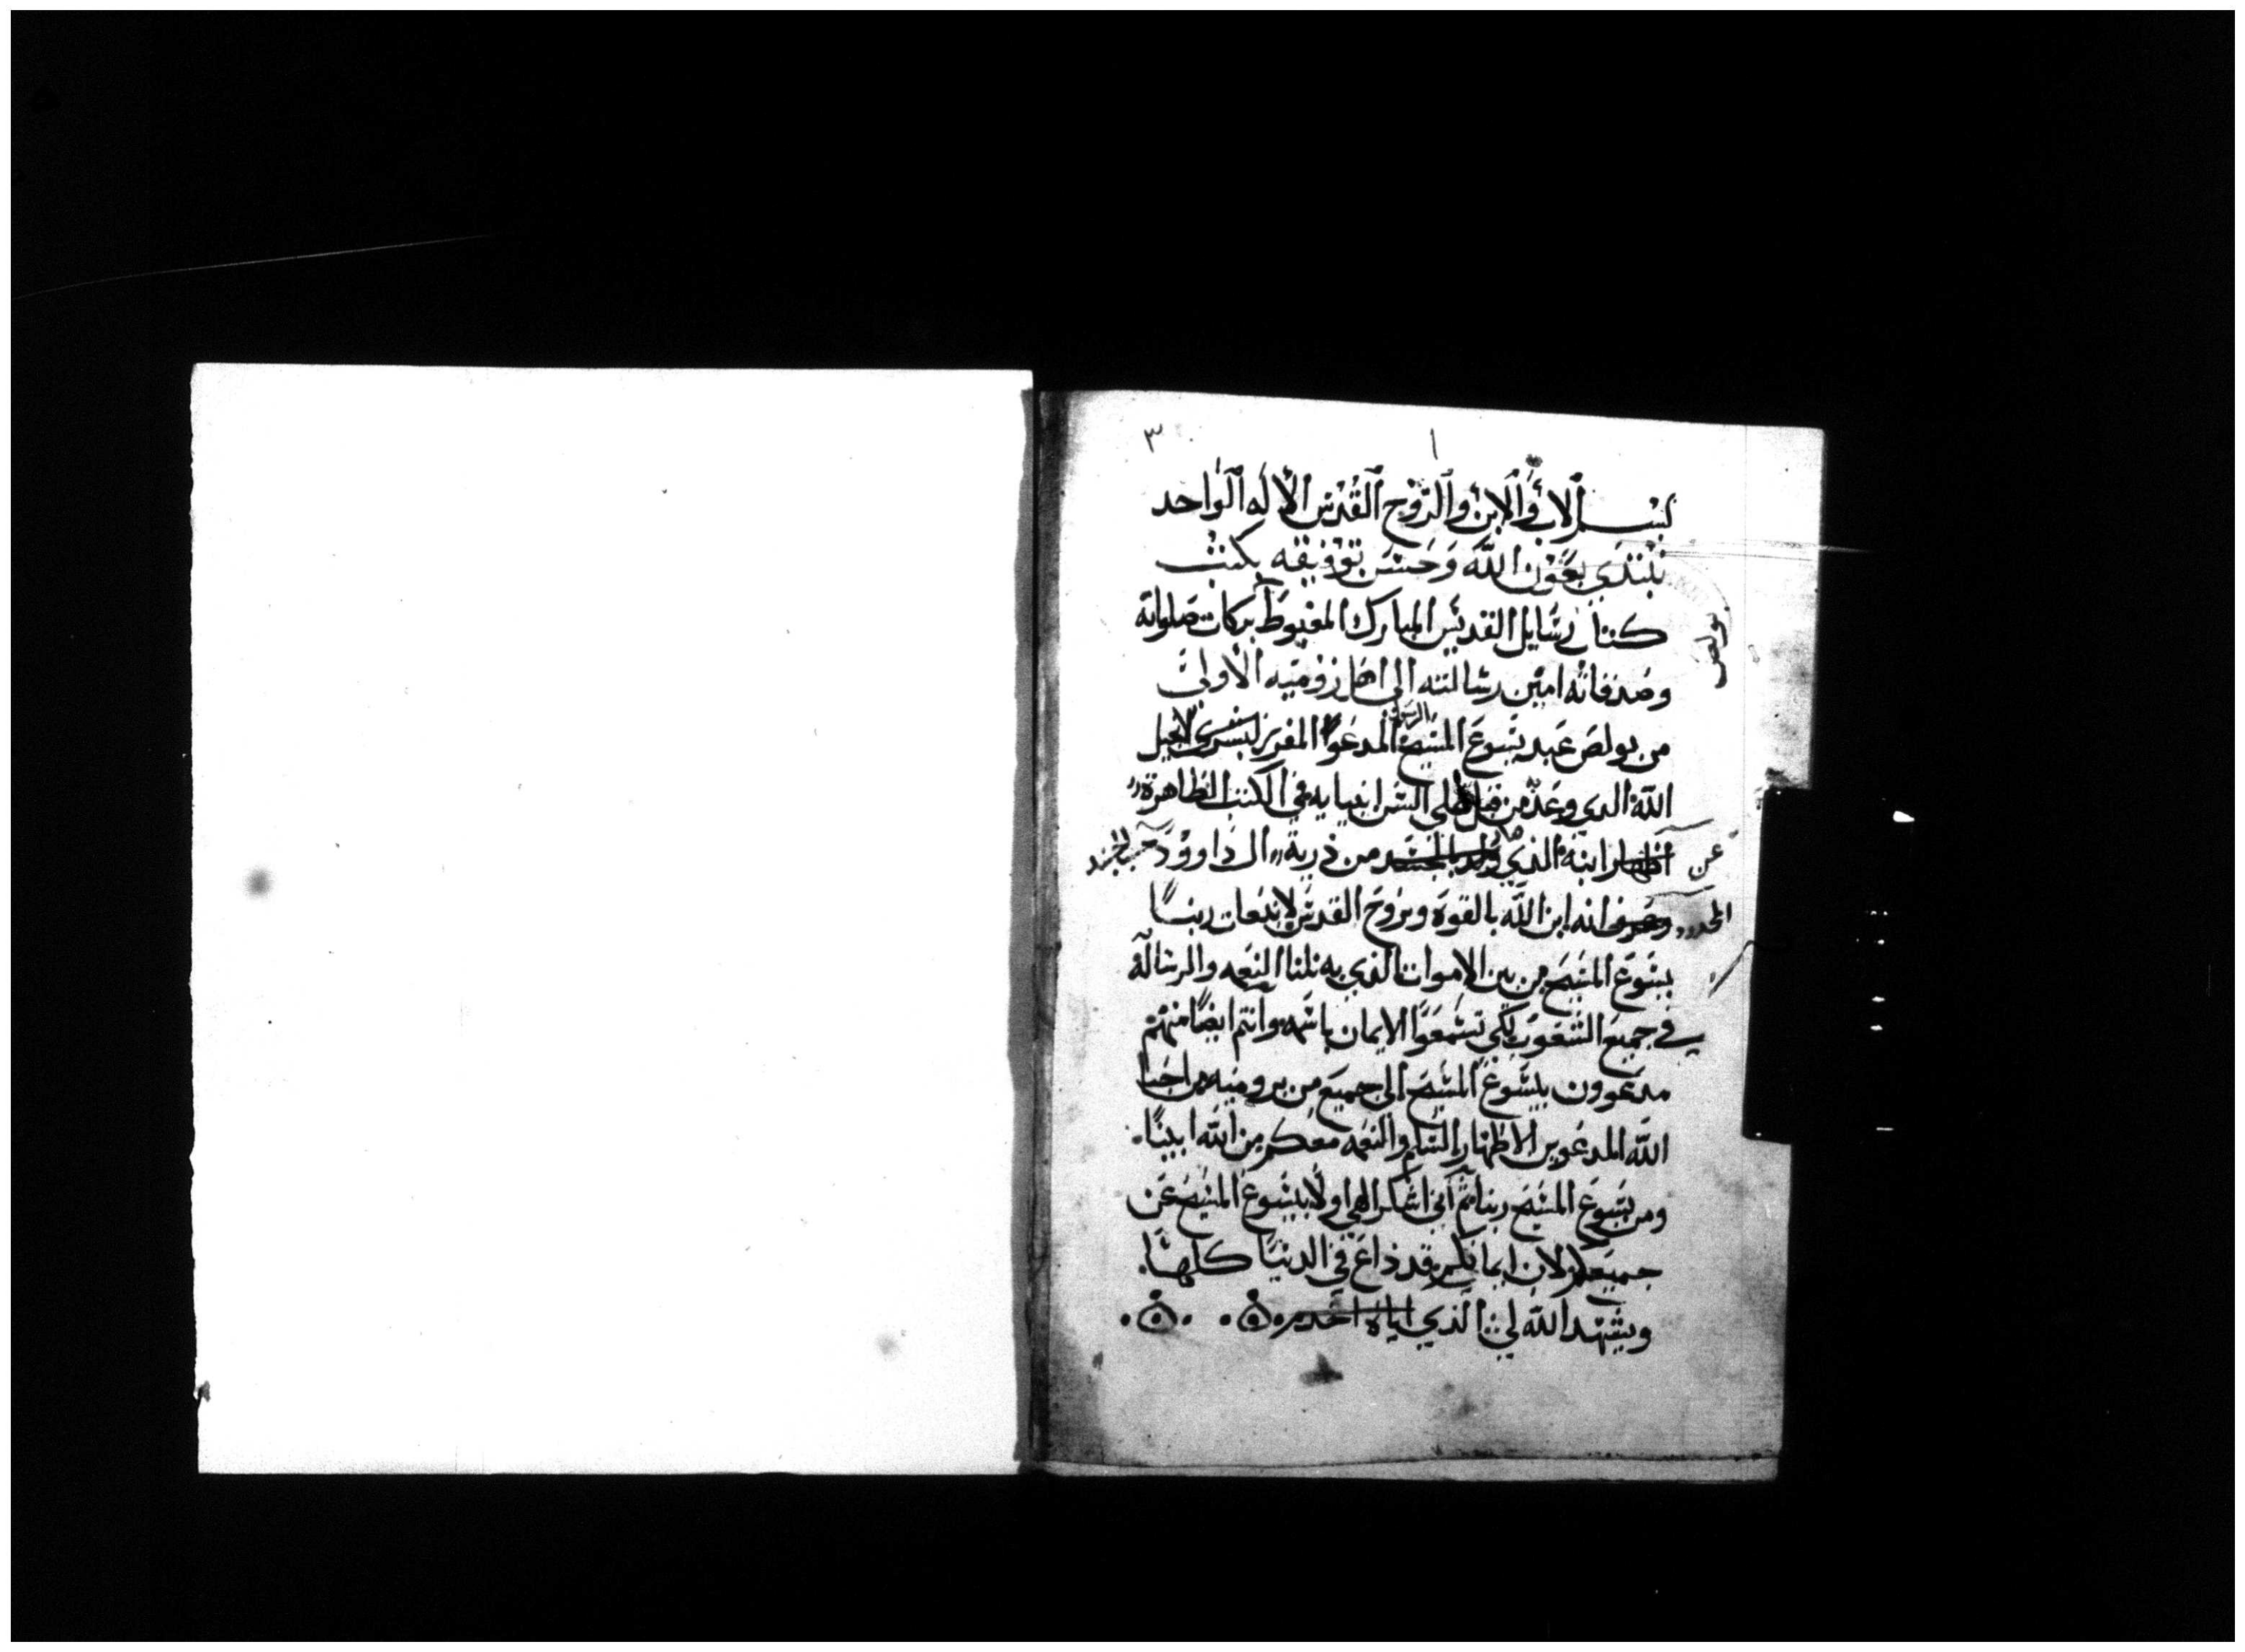 ٣
١
بسم الاب والابن والروح القدس الاله الواحد
نبتدي بعون الله وحسن توفيقه بكتب
كتاب رسايل القديس المبارك المغبوط بركات صلواته
بولص
وصدقاته امين رسالته الى اهل روميه الاولى
من بولص عبد يسوع المسيح المدعوا الرسول المفرز لبشرى انجيل
الله الدي وعد من قبل على السن انبيايه في الكتب الطاهرة
عن اظهار ابنه الذي ولد بالجسد من ذرية ال داوود
وعرف انه ابن الله بالقوة وبروح القدس لانبعاث ربنا
يسوع المسيح من بين الاموات الذي به نلنا النعمه والرسالة
في جميع الشعوب لكي تسمعوا الايمان باسمه وانتم ايضا منهم
مدعوون بيسوع المسيح الى جميع من بروميه من احبا
الله المدعوين الاطهار السلم والنعمه معكم من الله ابينا
ومن يسوع المسيح ربنا ثم اني اشكر الهي اولا بيسوع المسيح عن
جميعكم لان ايمانكم قد ذاع في الدنيا كلها
ويشهد الله لي الذي اياه اخدم